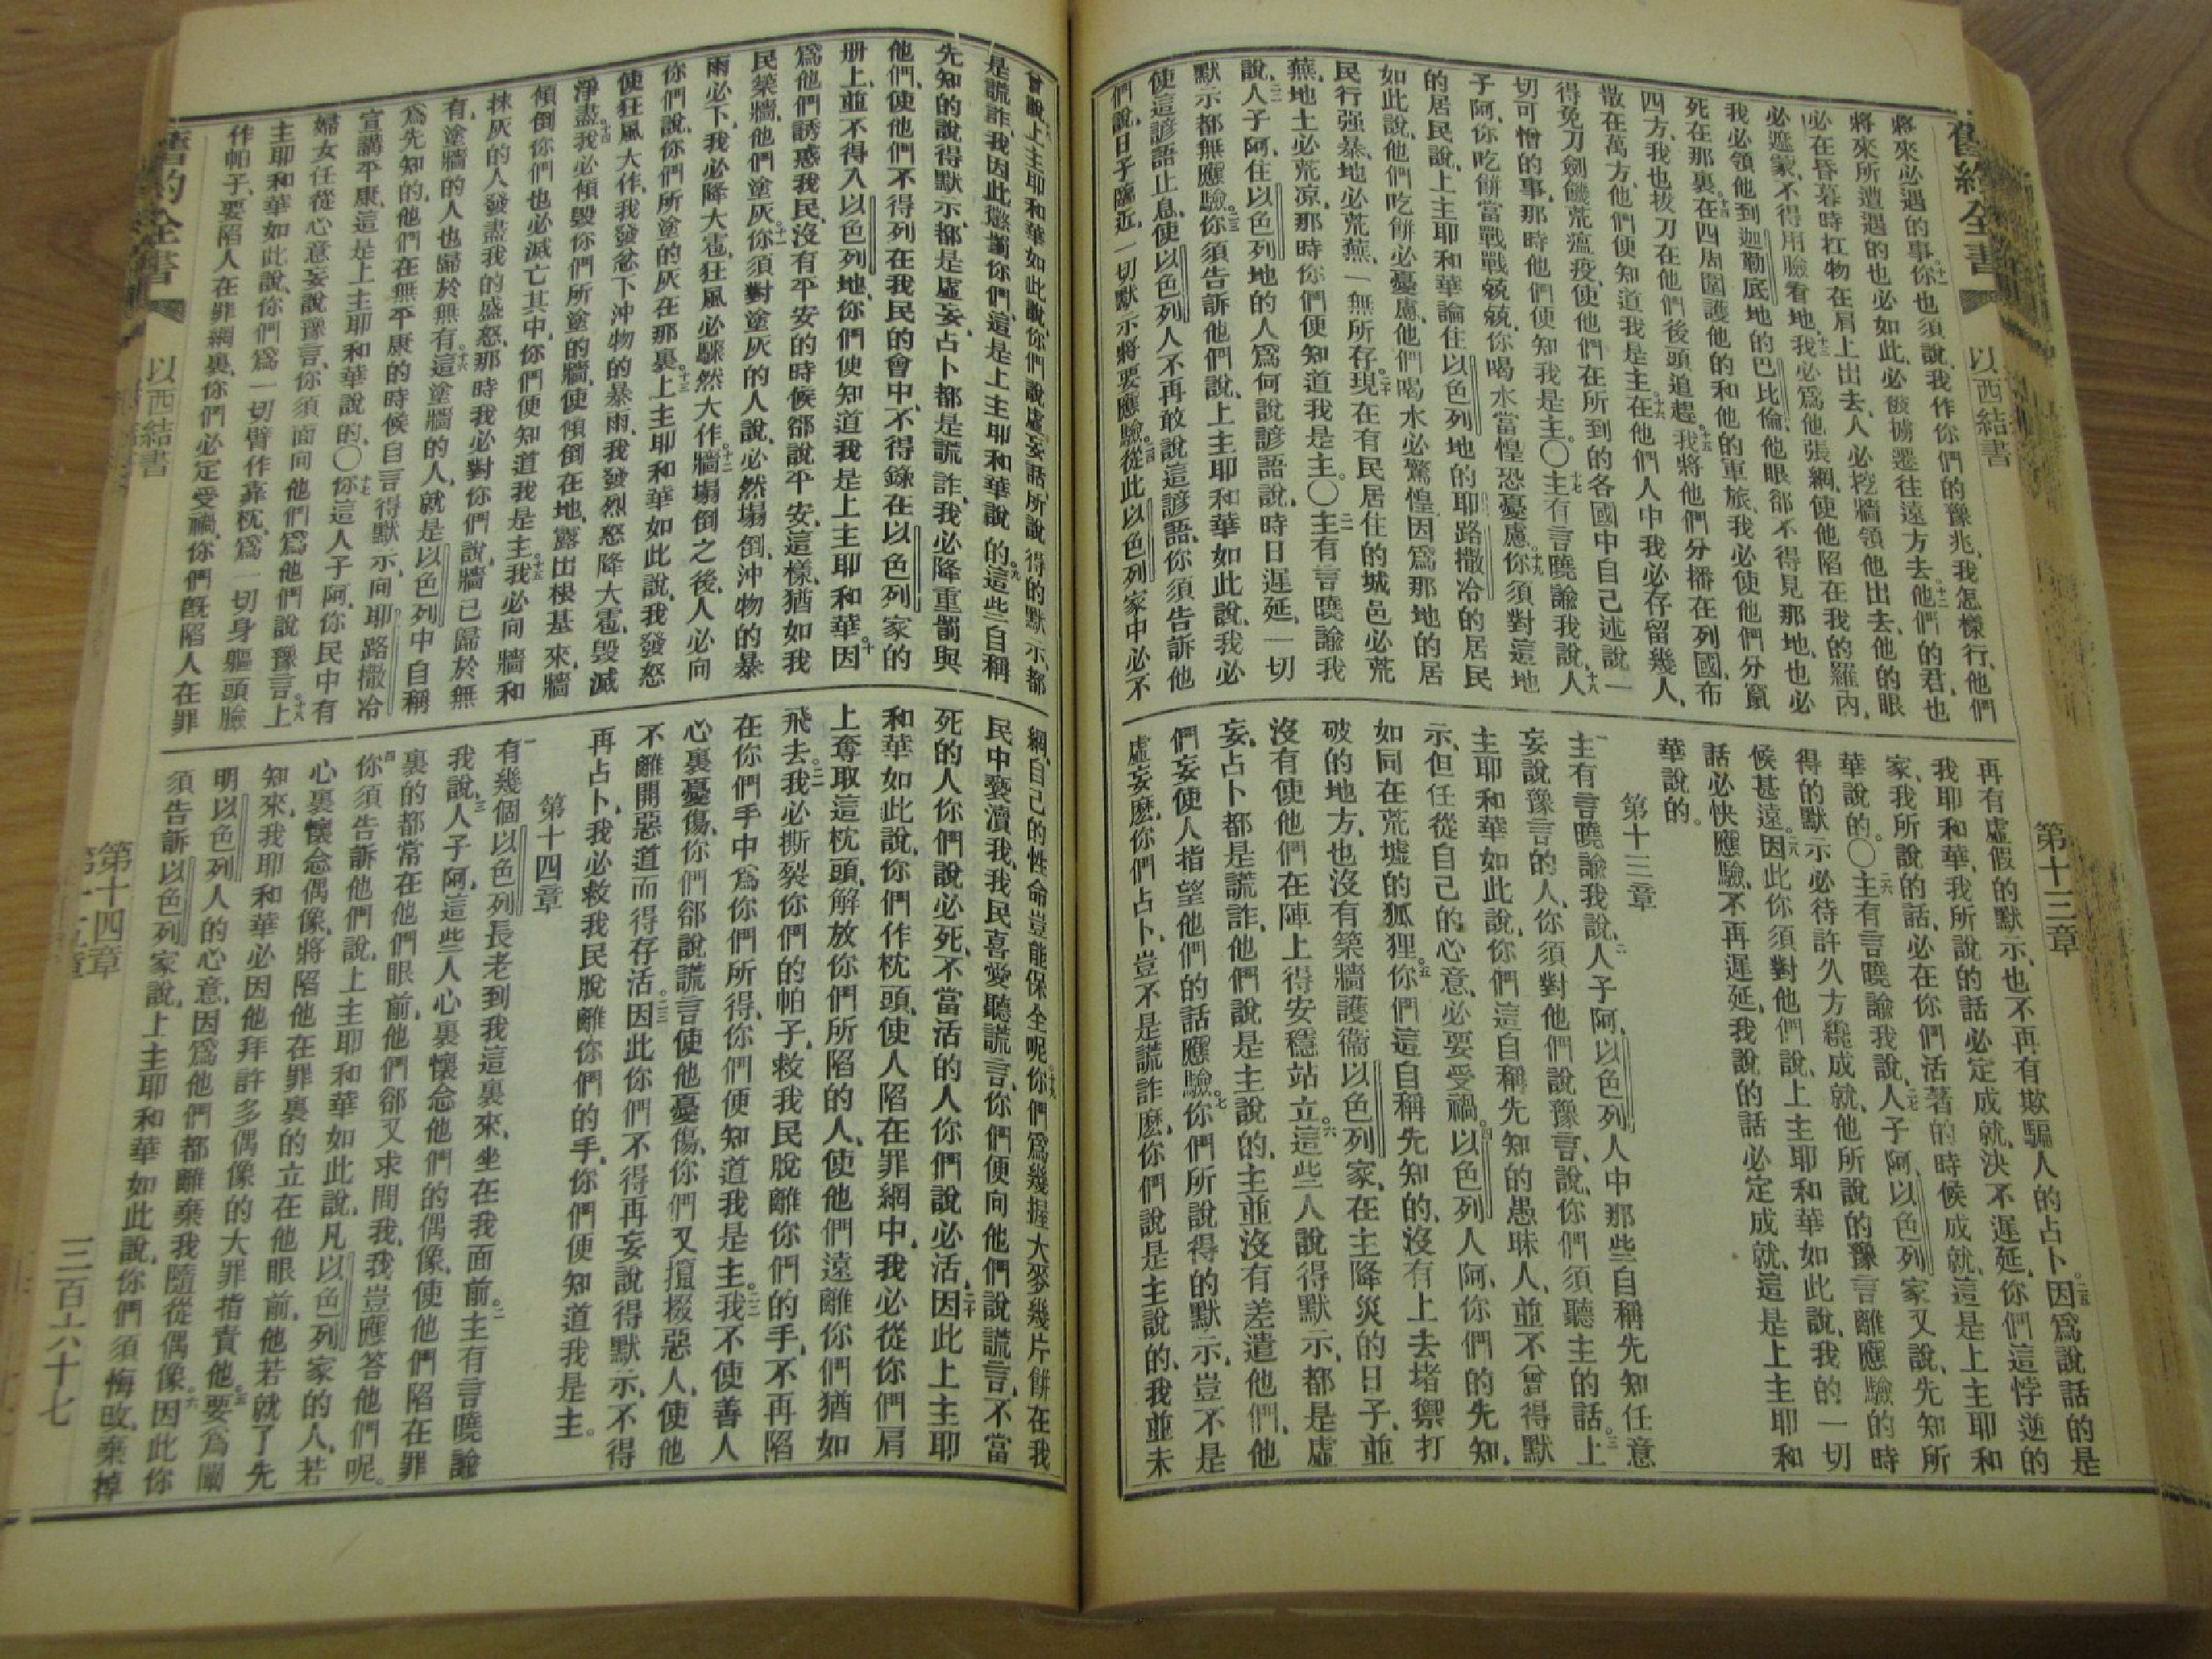 舊約全書
以西結書
第十三章
將來必遇的事。十一你也須說、我作你們的豫兆、我怎樣行、他們
將來所遭遇的也必如此、必被擄遷往遠方去。十二他們的君也
必在昏暮時扛物在肩上出去、人必挖牆領他出去、他的眼
必遮蒙、不得用臉看地。十三我必爲他張網、使他陷在我的羅內、
我必領他到迦勒底地的巴比倫、他眼卻不得見那地、也必
死在那裏。十四在四周圍護他的和他的軍旅、我必使他們分竄
四方、我也拔刀在他們後頭追趕。十五我將他們分播在列國、布
散在萬方、他們便知道我是主。十六在他們人中我必存留幾人、
得免刀劍饑荒瘟疫、使他們在所到的各國中自己述說一
切可憎的事、那時他們便知我是主。〇十七主有言曉諭我說、十八人
子阿、你吃餅當戰戰兢兢、你喝水當惶恐憂慮。十九你須對這地
的居民說、上主耶和華論住以色列地的耶路撒冷的居民
如此說、他們吃餅必憂慮、他們喝水必驚惶、因爲那地的居
民行强暴、地必荒蕪、一無所存。二十現在有民居住的城邑必荒
蕪、地土必荒凉、那時你們便知道我是主。〇二一主有言曉諭我
說、二二人子阿、住以色列地的人爲何說諺語說、時日遲延、一切
默示都無應驗。二三你須告訴他們說、上主耶和華如此說、我必
使這諺語止息、使以色列人不再敢說這諺語、你須告訴他
們說、日子臨近、一切默示將要應驗。二四從此以色列家中必不
再有虛假的默示、也不再有欺騙人的占卜。二五因爲說話的是
我耶和華、我所說的話必定成就、決不遲延、你們這悖逆的
家、我所說的話、必在你們活著的時候成就、這是上主耶和
華說的。〇二六主有言曉諭我說、二七人子阿、以色列家又說、先知所
得的默示必待許久方纔成就、他所說的豫言離應驗的時
候甚遠。二八因此你須對他們說、上主耶和華如此說、我的一切
話必快應驗、不再遲延、我說的話必定成就、這是上主耶和
華說的。
第十三章
一主有言曉諭我說、二人子阿、以色列人中那些自稱先知任意
妄說豫言的人、你須對他們說豫言、說、你們須聽主的話。三上
主耶和華如此說、你們這自稱先知的愚昧人、並不曾得默
示、但任從自己的心意、必要受禍。四以色列人阿、你們的先知、
如同在荒墟的狐狸。五你們這自稱先知的、沒有上去堵禦打
破的地方、也沒有築牆護衞以色列家、在主降災的日子、並
沒有使他們在陣上得安穩站立。六這些人說得默示、都是虛
妄、占卜都是謊詐、他們說是主說的、主並沒有差遣他們、他
們妄使人指望他們的話應驗。七你們所說得的默示、豈不是
虛妄麽、你們占卜、豈不是謊詐麽、你們說是主說的、我並未
曾說。八上主耶和華如此說、你們說虛妄話、所說得的默示都
是謊詐、我因此懲罰你們、這是上主耶和華說的。九這些自稱
先知的說得默示、都是虛妄、占卜都是謊詐、我必降重罰與
他們、使他們不得列在我民的會中、不得錄在以色列家的
册上、並不得入以色列地、你們便知道我是上主耶和華。十因
爲他們誘惑我民、沒有平安的時候、卻說平安、這樣、猶如我
民築牆、他們塗灰。十一你須對塗灰的人說、必然塌倒、沖物的暴
雨必下、我必降大雹、狂風必驟然大作。十二牆塌倒之後、人必向
你們說、你們所塗的灰在那裏。十三上主耶和華如此說、我發怒
使狂風大作、我發忿下沖物的暴雨、我發烈怒降大雹、毀滅
淨盡。十四我必傾毀你們所塗的牆、使傾倒在地、露出根基來、牆
傾倒、你們也必滅亡其中、你們便知道我是主。十五我必向牆和
抹灰的人發盡我的盛怒、那時我必對你們說、牆已歸於無
有、塗牆的人也歸於無有。十六這塗牆的人、就是以色列中自稱
爲先知的、他們在無平康的時候自言得默示、向耶路撒冷
宣講平康、這是上主耶和華說的。〇十七你這人子阿、你民中有
婦女任從心意妄說豫言、你須面向他們、爲他們說豫言。十八上
主耶和華如此說、你們爲一切臂作靠枕、爲一切身軀頭臉
作帕子、要陷人在罪網裏、你們必定受禍、你們旣陷人在罪
網、自己的性命豈能保全呢。十九你們爲幾握大麥幾片餅在我
民中褻瀆我、我民喜愛聽謊言、你們便向他們說謊言、不當
死的人你們說必死、不當活的人你們說必活、二十因此上主耶
和華如此說、你們作枕頭、使人陷在罪網中、我必從你們肩
上奪取這枕頭、解放你們所陷的人、使他們遠離你們猶如
飛去。二一我必撕裂你們的帕子、救我民脫離你們的手、不再陷
在你們手中、爲你們所得、你們便知道我是主。二二我不使善人
心裏憂傷、你們卻說謊言使他憂傷、你們又攛掇惡人、使他
不離開惡道而得存活。二三因此你們不得再妄說得默示、不得
再占卜、我必救我民脫離你們的手、你們便知道我是主。
第十四章
一有幾個以色列長老到我這裏來、坐在我面前。二主有言曉諭
我說、三人子阿、這些人心裏懷念他們的偶像、使他們陷在罪
裏的都常在他們眼前、他們卻又求問我、我豈應答他們呢。
四你須告訴他們說、上主耶和華如此說、凡以色列家的人、若
心裏懷念偶像、將陷他在罪裏的立在他眼前、他若就了先
知來、我耶和華必因他拜許多偶像的大罪指責他。五要爲闡
明以色列人的心意、因爲他們都離棄我隨從偶像。六因此你
須告訴以色列家說、上主耶和華如此說、你們須悔改、棄掉
舊約全書
以西結書
第十四章
三百六十七